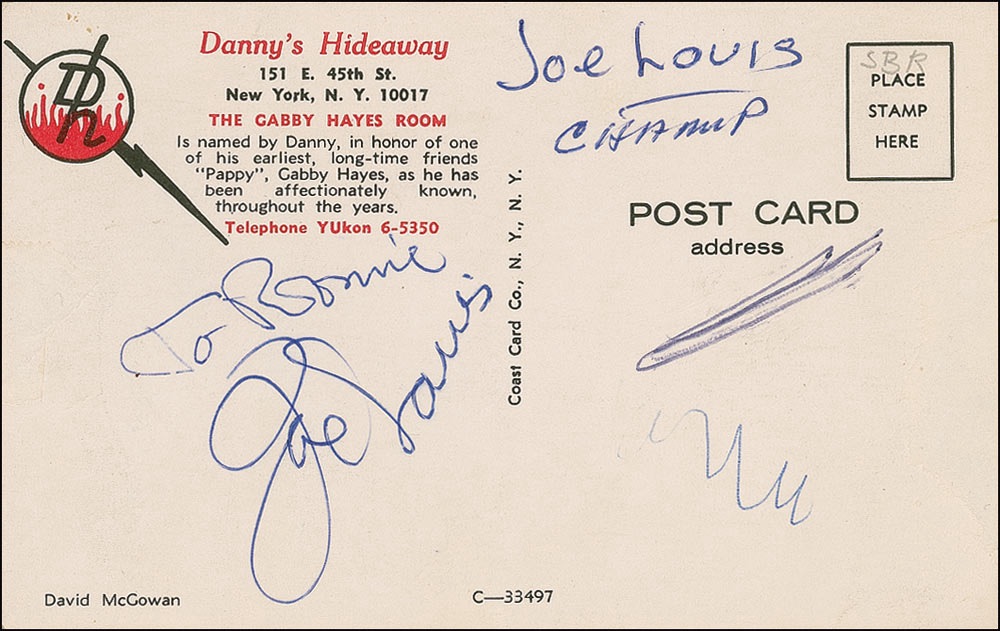 Dh
Danny's Hideaway
151 E. 45th St.
New York, N. Y. 10017
THE GABBY HAYES ROOM
Is named by Danny, in honor of one
of his earliest, long-time friends
"Pappy", Gabby Hayes, as he has
been affectionately known,
throughout the years.
Telephone YUkon 6-5350
To Bonnie
Joe Louis
David McGowan
Coast Card Co., N. Y., N. Y.
C—33497
Joe Louis
CHAMP
SBR
PLACE
STAMP
HERE
POST CARD
address